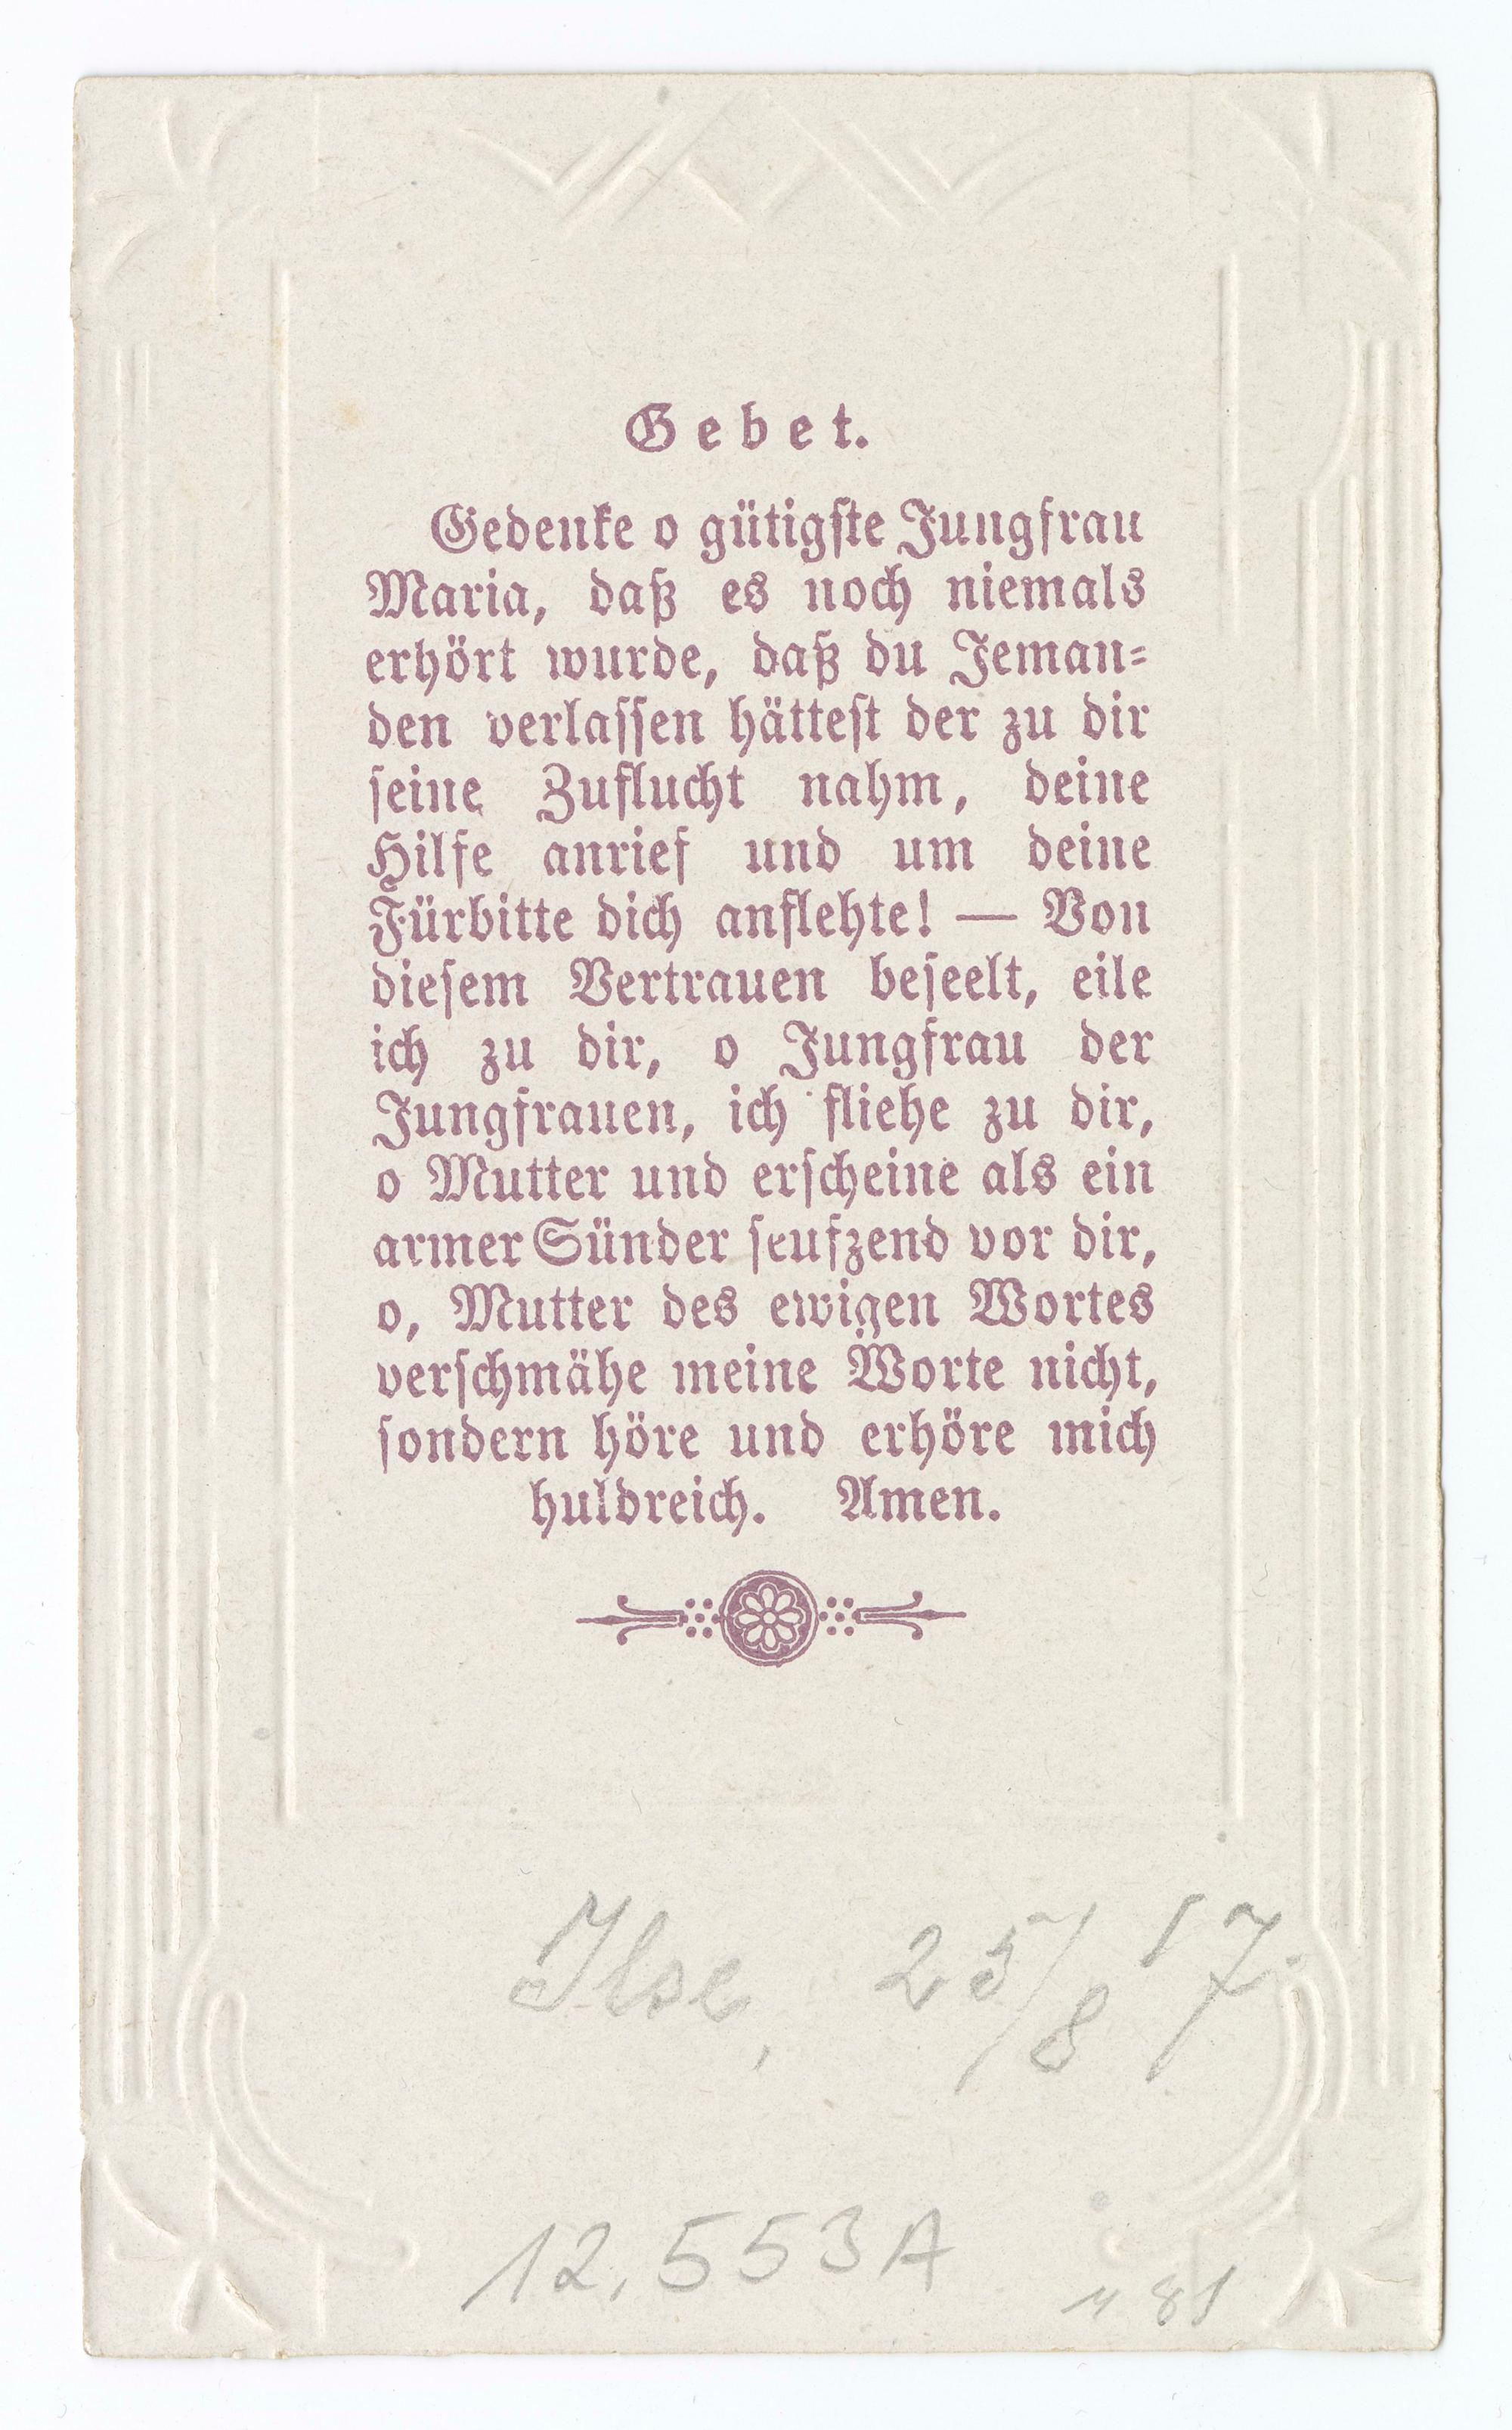 Gebet.
Gedenke o gütigste Jungfrau
Maria, daß es noch niemals
erhört wurde, daß du Jeman-
den verlassen hättest der zu dir
seine Zuflucht nahm, deine
Hilfe anrief und um deine
Fürbitte dich anflehte! — Von
diesem Vertrauen beseelt, eile
ich zu dir, o Jungfrau der
Jungfrauen, ich fliehe zu dir,
o Mutter und erscheine als ein
armer Sünder seufzend vor dir,
o, Mutter des ewigen Wortes
verschmähe meine Worte nicht,
sondern höre und erhöre mich
huldreich. Amen.
Ilse, 25/8 17.
12.553A